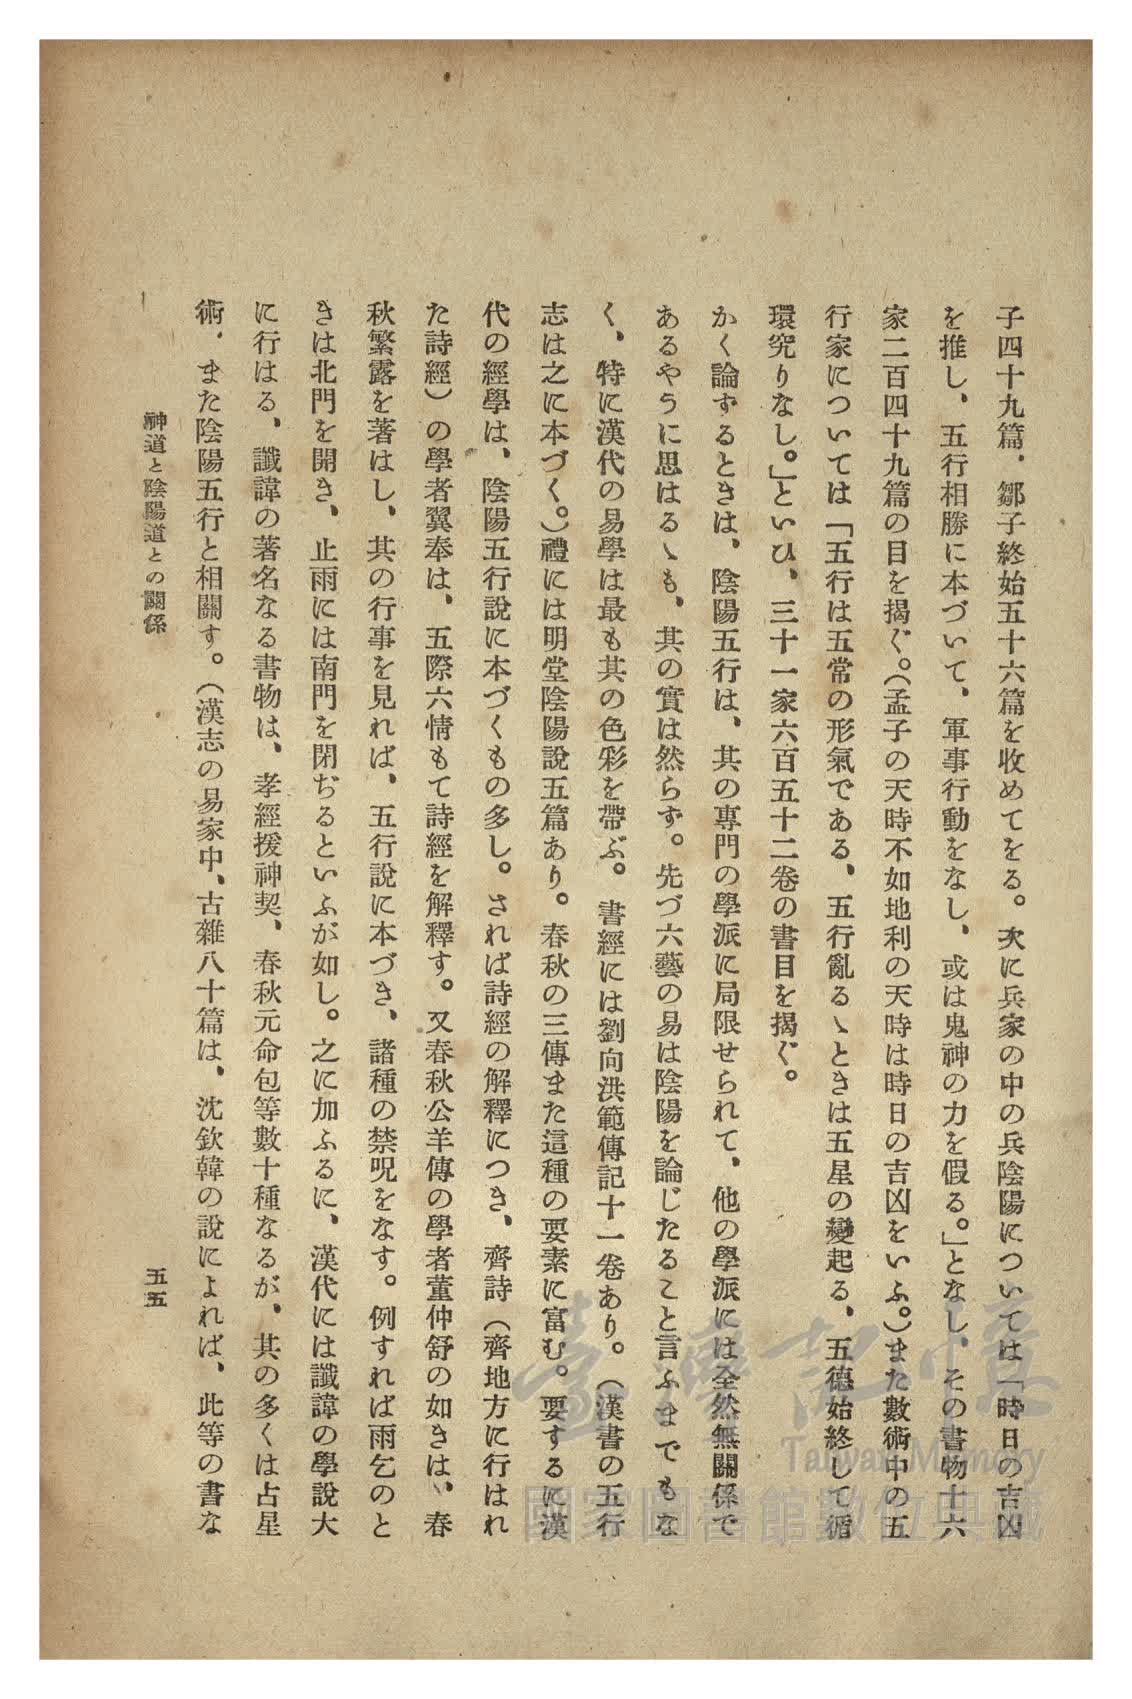 子四十九篇、鄒子終始五十六篇を收めてをる。次に兵家の中の兵陰陽については「時日の吉凶
を推し、五行相勝に本づいて、軍事行動をなし、或は鬼神の力を假る。」となし、その書物十六
家二百四十九篇の目を揭ぐ。(孟子の天時不如地利の天時は時日の吉凶をいふ。)また數術中の五
行家については「五行は五常の形氣である、五行亂るゝときは五星の變起る、五德始終して循
環究りなし。」といひ、三十一家六百五十二卷の書目を揭ぐ。
かく論ずるときは、陰陽五行は、其の專門の學派に局限せられて、他の學派には全然無關係で
あるやうに思はるゝも、其の實は然らず。先づ六藝の易は陰陽を論じたること言ふまでもな
く、特に漢代の易學は最も其の色彩を帶ぶ。書經には劉向洪範傳記十一卷あり。(漢書の五行
志は之に本づく。)禮には明堂陰陽說五篇あり。春秋の三傳また這種の要素に富む。要するに漢
代の經學は、陰陽五行說に本づくもの多し。されば詩經の解釋につき、齊詩(齊地方に行はれ
た詩經)の學者翼奉は、五際六情もて詩經を解釋す。又春秋公羊傳の學者董仲舒の如きは、春
秋繁露を著はし、其の行事を見れば、五行說に本づき、諸種の禁呪をなす。例すれば雨乞のと
きは北門を開き、止雨には南門を閉ぢるといふが如し。之に加ふるに、漢代には讖諱の學說大
に行はる、讖諱の著名なる書物は、孝經援神契、春秋元命包等數十種なるが、其の多くは占星
術、また陰陽五行と相關す。(漢志の易家中、古雜八十篇は、沈欽韓の說によれば、此等の書な
神道と陰陽道との關係
五五
臺灣記憶
Taiwan Memory
國家圖書館數位典藏